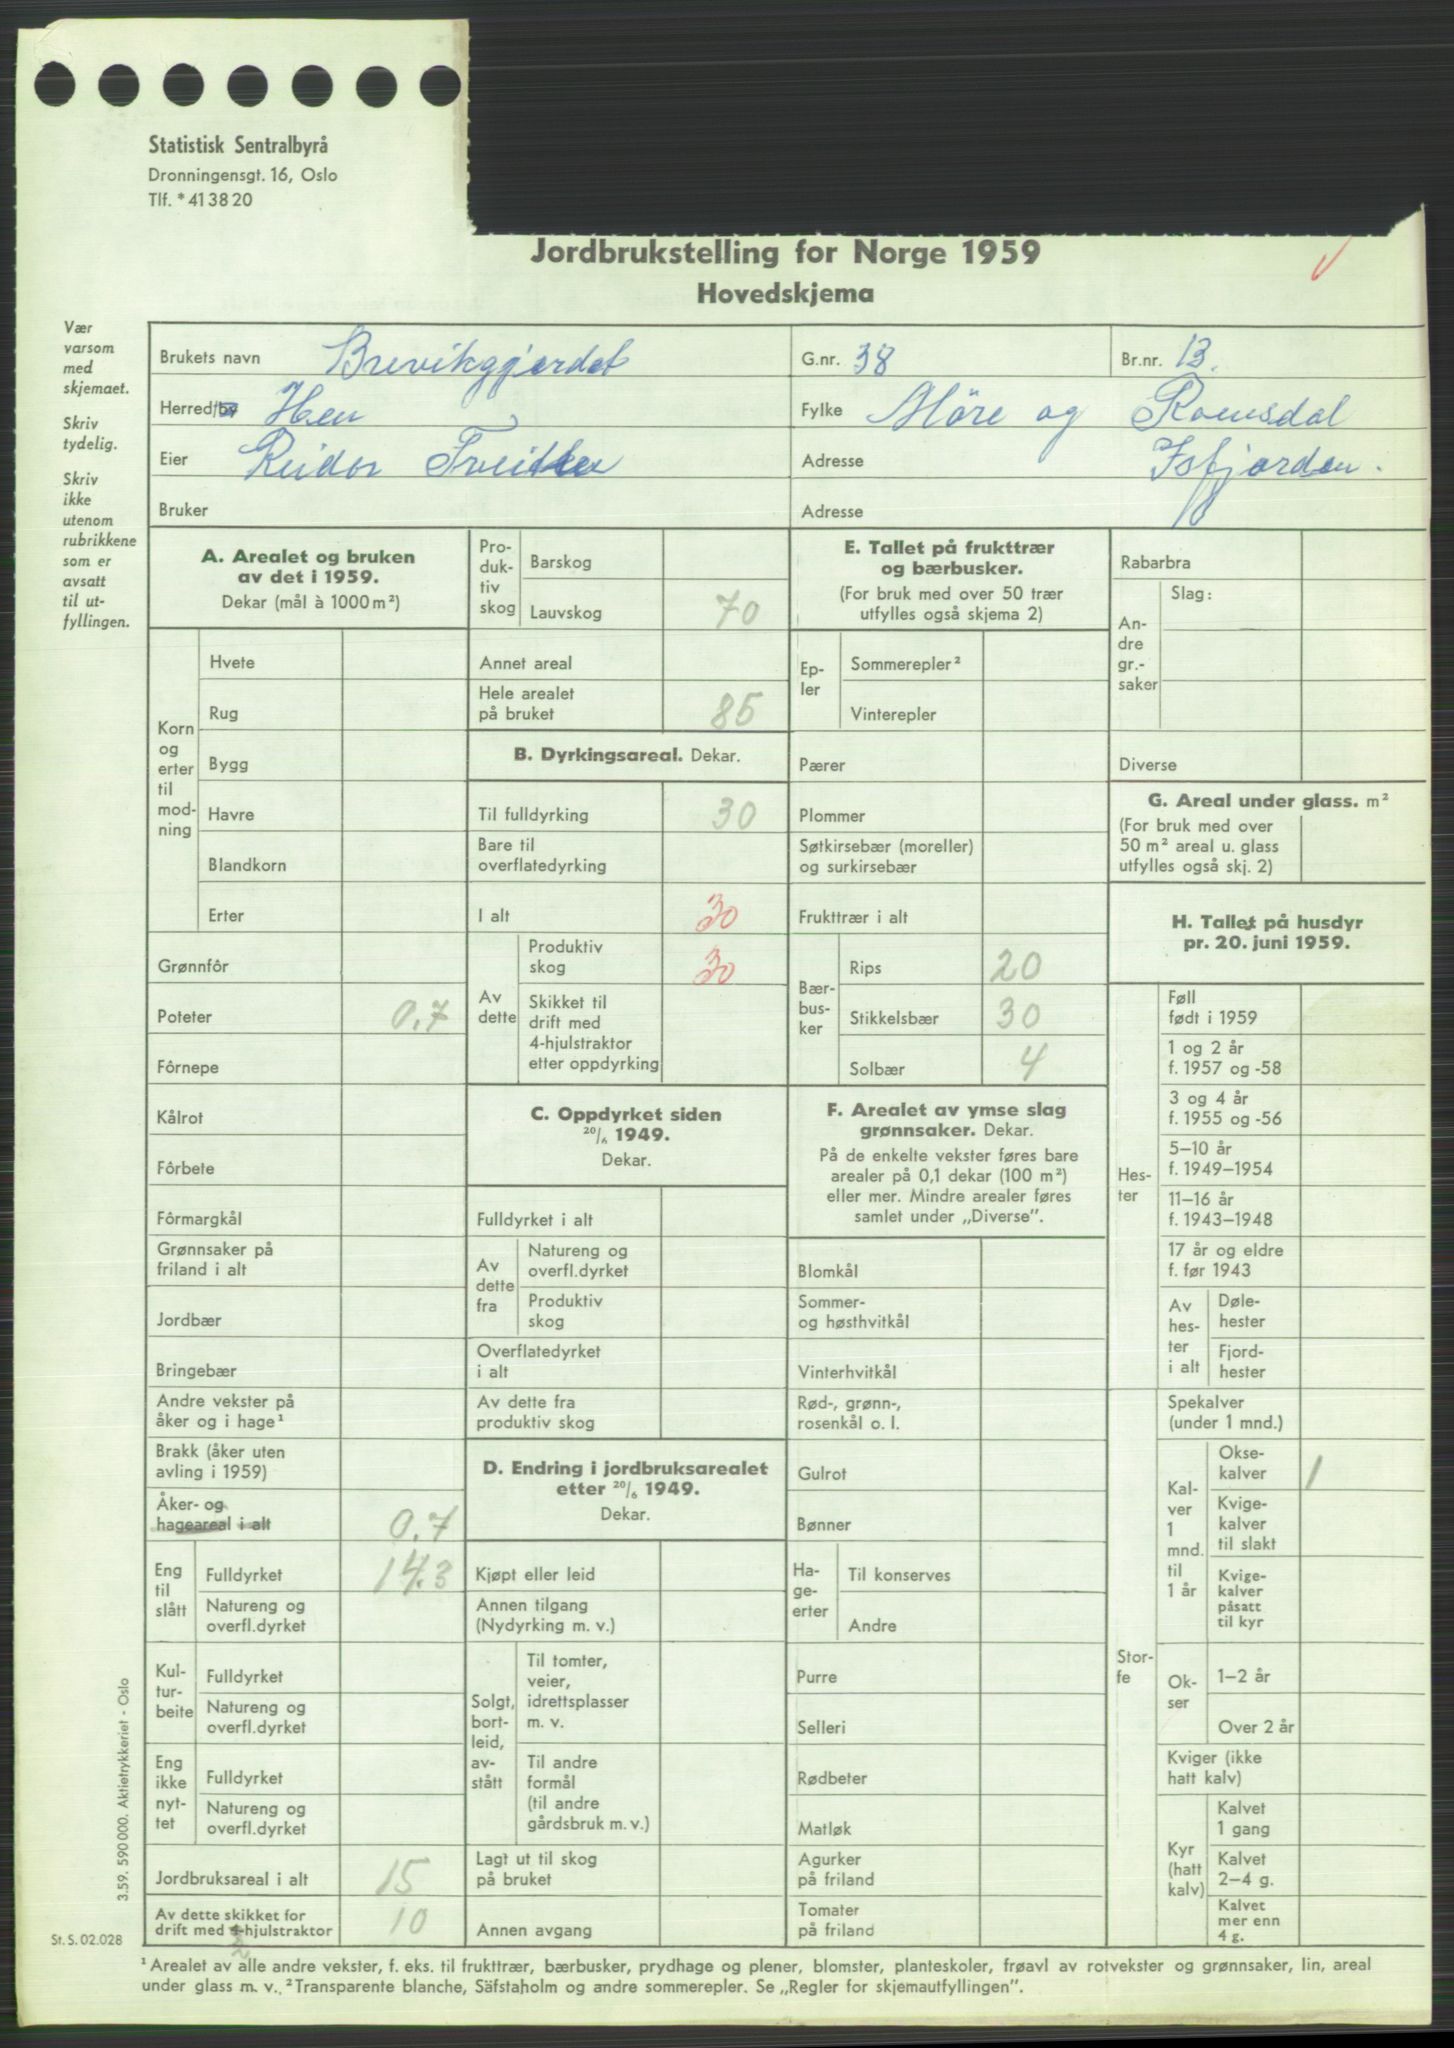 Statistisk Sentralbyrå
Dronningensgt. 16, Oslo
Tlf. * 41 38 20
Jordbrukstelling for Norge 1959
Hovedskjema
Vær
varsom
med
skjemaet.
Skriv
tydelig.
Skriv
ikke
utenom
rubrikkene
som er
avsatt
til ut-
fyllingen.
Brukets navn Brevikgjerdet G.nr. 38 Br.nr. 13.
Herred/by Hen Fylke Møre og Romsdal
Eier Reidar Adresse Isfjorden.
Bruker Adresse
A. Arealet og bruken
av det i 1959.
Dekar (mål à 1000 m²)
Korn
og
erter
til
mod-
ning
Hvete
Rug
Bygg
Havre
Blandkorn
Erter
Grønnfôr
Poteter 0.7
Fôrnepe
Kålrot
Fôrbete
Fôrmargkål
Grønnsaker på
friland i alt
Jordbær
Bringebær
Andre vekster på
åker og i hage¹
Brakk (åker uten
avling i 1959)
Åker- og
hageareal i alt 0.7
Eng
til
slått
Fulldyrket 14.3
Natureng og
overfl.dyrket
Kul-
tur-
beite
Fulldyrket
Natureng og
overfl.dyrket
Eng
ikke
nyt-
tet
Fulldyrket
Natureng og
overfl.dyrket
Jordbruksareal i alt 15
Av dette skikket for
drift med 4-hjulstraktor 10
2
Pro-
duk-
tiv
skog
Barskog
Lauvskog 70
Annet areal
Hele arealet
på bruket 85
B. Dyrkingsareal. Dekar.
Til fulldyrking 30
Bare til
overflatedyrking
I alt 30
Av
dette
Produktiv
skog 30
Skikket til
drift med
4-hjulstraktor
etter oppdyrking
C. Oppdyrket siden
20/6 1949.
Dekar.
Fulldyrket i alt
Av
dette
fra
Natureng og
overfl.dyrket
Produktiv
skog
Overflatedyrket
i alt
Av dette fra
produktiv skog
D. Endring i jordbruksarealet
etter 20/6 1949.
Dekar.
Kjøpt eller leid
Annen tilgang
(Nydyrking m. v.)
Solgt,
bort-
leid,
av-
stått
Til tomter,
veier,
idrettsplasser
m. v.
Til andre
formål
(til andre
gårdsbruk m. v.)
Lagt ut til skog
på bruket
Annen avgang
E. Tallet på frukttrær
og bærbusker.
(For bruk med over 50 trær
utfylles også skjema 2)
Ep-
ler
Sommerepler²
Vinterepler
Pærer
Plommer
Søtkirsebær (moreller)
og surkirsebær
Frukttrær i alt
Bær-
bus-
ker
Rips 20
Stikkelsbær 30
Solbær 4
F. Arealet av ymse slag
grønnsaker. Dekar.
På de enkelte vekster føres bare
arealer på 0,1 dekar (100 m²)
eller mer. Mindre arealer føres
samlet under „Diverse".
Blomkål
Sommer-
og høsthvitkål
Vinterhvitkål
Rød-, grønn-,
rosenkål o. l.
Gulrot
Bønner
Ha-
ge-
erter
Til konserves
Andre
Purre
Selleri
Rødbeter
Matløk
Agurker
på friland
Tomater
på friland
Rabarbra
An-
dre
gr.-
saker
Slag:
Diverse
G. Areal under glass. m²
(For bruk med over
50 m² areal u. glass
utfylles også skj. 2)
H. Tallet på husdyr
pr. 20. juni 1959.
Hes-
ter
Føll
født i 1959
1 og 2 år
f. 1957 og -58
3 og 4 år
f. 1955 og -56
5–10 år
f. 1949–1954
11–16 år
f. 1943–1948
17 år og eldre
f. før 1943
Av
hes-
ter
i alt
Døle-
hester
Fjord-
hester
Stor-
fe
Spekalver
(under 1 mnd.)
Kal-
ver
1
mnd.
til
1 år
Okse-
kalver 1
Kvige-
kalver
til slakt
Kvige-
kalver
påsatt
til kyr
Ok-
ser
1–2 år
Over 2 år
Kviger (ikke
hatt kalv)
Kyr
(hatt
kalv)
Kalvet
1 gang
Kalvet
2–4 g.
Kalvet
mer enn
4 g.
3.59. 590 000. Aktietrykkeriet - Oslo
St. S. 02.028
¹ Arealet av alle andre vekster, f. eks. til frukttrær, bærbusker, prydhage og plener, blomster, planteskoler, frøavl av rotvekster og grønnsaker, lin, areal
under glass m. v. ² Transparente blanche, Säfstaholm og andre sommerepler. Se „Regler for skjemautfyllingen".